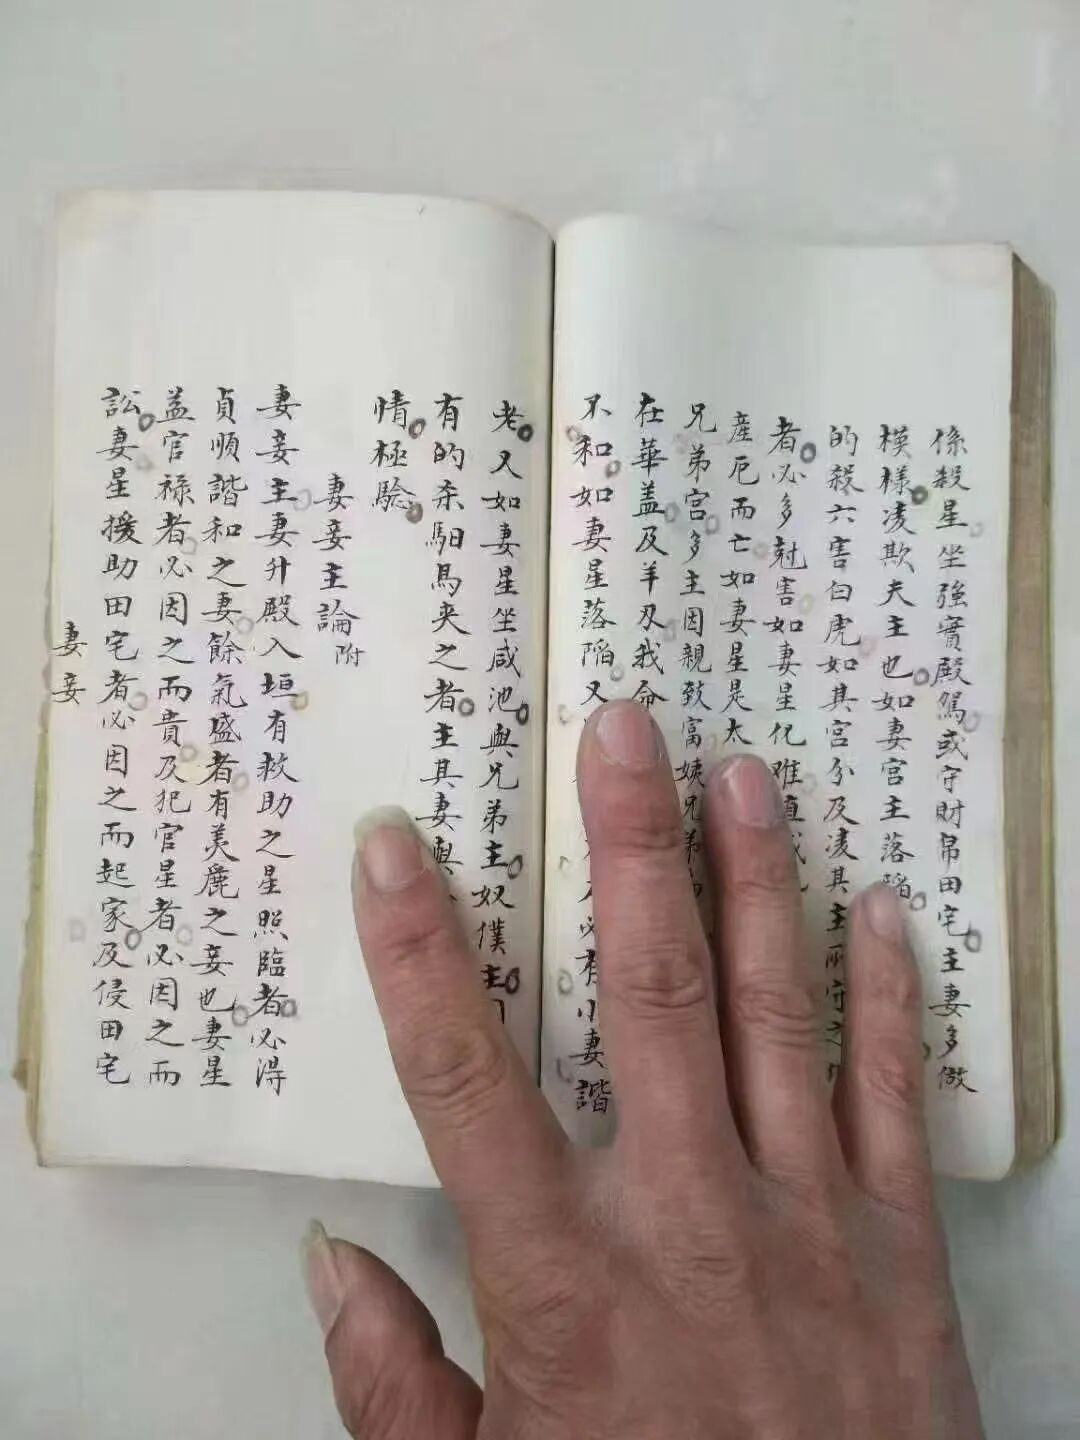 係殺星坐強實殿駕或守財帛田宅主妻多做
模樣凌欺夫主也如妻宮主落陷
的殺六害白虎如其宮分及凌其主所守之
者必多尅害如妻星化难直
產厄而亡如妻星是太
兄弟宮多主因親致富姨兄弟
在華盖及羊刃我命
不和如妻星落陷又
必有小妻諧
老又如妻星坐咸池與兄弟主奴僕主同
有的杀馹馬夹之者主其妻與
情極驗
妻妾主論附
妻妾主妻升殿入垣有救助之星照臨者必得
貞順諧和之妻餘氣盛者有美麗之妾也妻星
益官禄者必因之而貴及犯官星者必因之而
訟妻星援助田宅者必因之而起家及侵田宅
妻妾